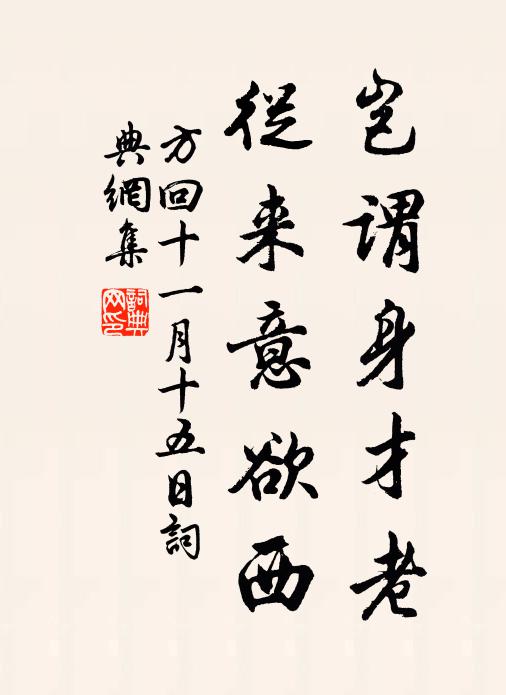 岂谓身才老
從来意欲西
方回十一月十五日詞
典網集
詞典网印